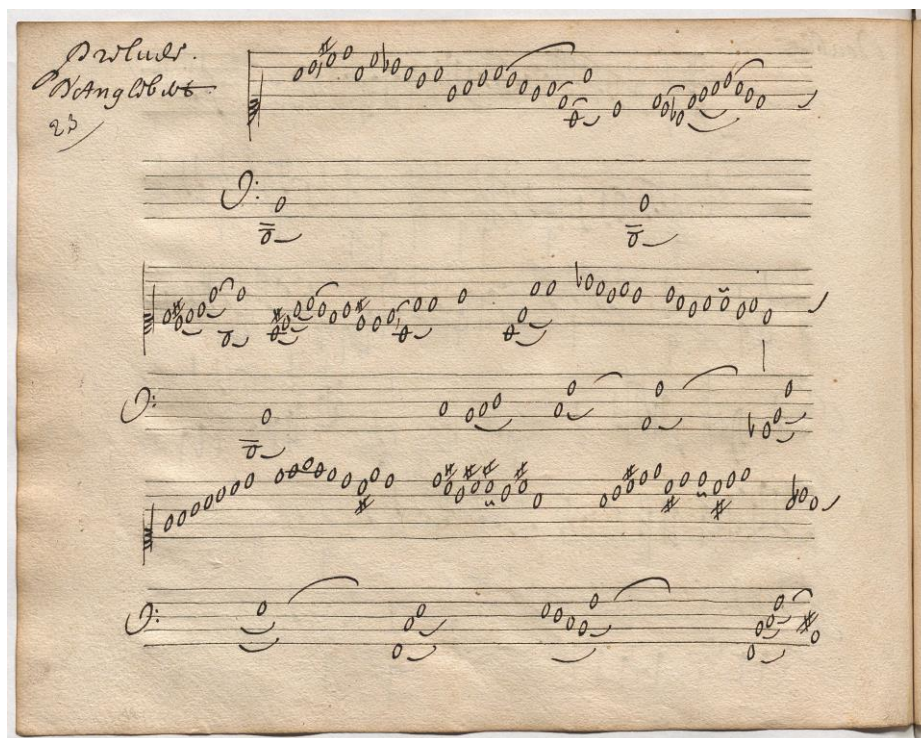 Prelude.
D'Anglebert
23